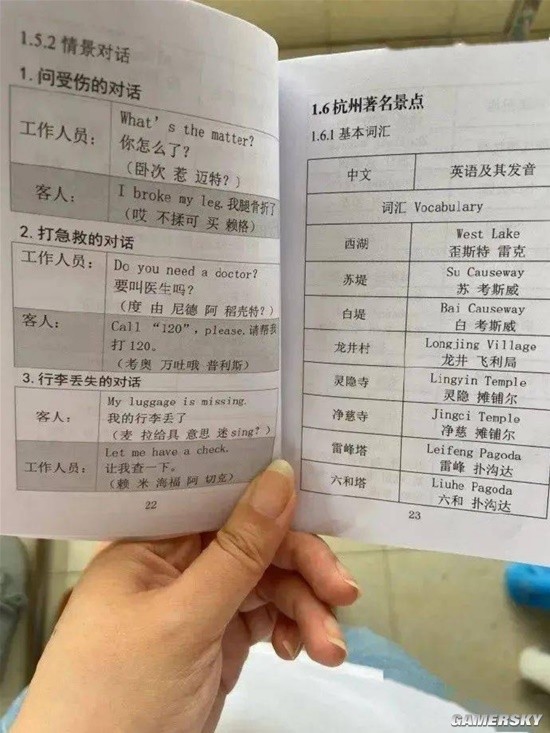 1.5.2 情景对话
1. 问受伤的对话
工作人员：
What's the matter?
你怎么了？
（卧次 惹 迈特？）
客人：
I broke my leg. 我腿骨折了
（哎 不揉可 买 赖格）
2. 打急救的对话
工作人员：
Do you need a doctor?
要叫医生吗？
（度 由 尼德 阿 稻克特？）
客人：
Call “120”, please. 请帮我
打 120。
（考奥 万吐哦 普利斯）
3. 行李丢失的对话
客人：
My luggage is missing.
我的行李丢了
（麦 拉给具 意思 迷sing？）
工作人员：
Let me have a check.
让我查一下。
（赖 米 海福 阿 切克）
22
1.6 杭州著名景点
1.6.1 基本词汇
中文 英语及其发音
词汇 Vocabulary
西湖
West Lake
歪斯特 雷克
苏堤
Su Causeway
苏 考斯威
白堤
Bai Causeway
白 考斯威
龙井村
Longjing Village
龙井 飞利局
灵隐寺
Lingyin Temple
灵隐 摊铺尔
净慈寺
Jingci Temple
净慈 摊铺尔
雷峰塔
Leifeng Pagoda
雷峰 扑沟达
六和塔
Liuhe Pagoda
六和 扑沟达
23
GAMERSKY